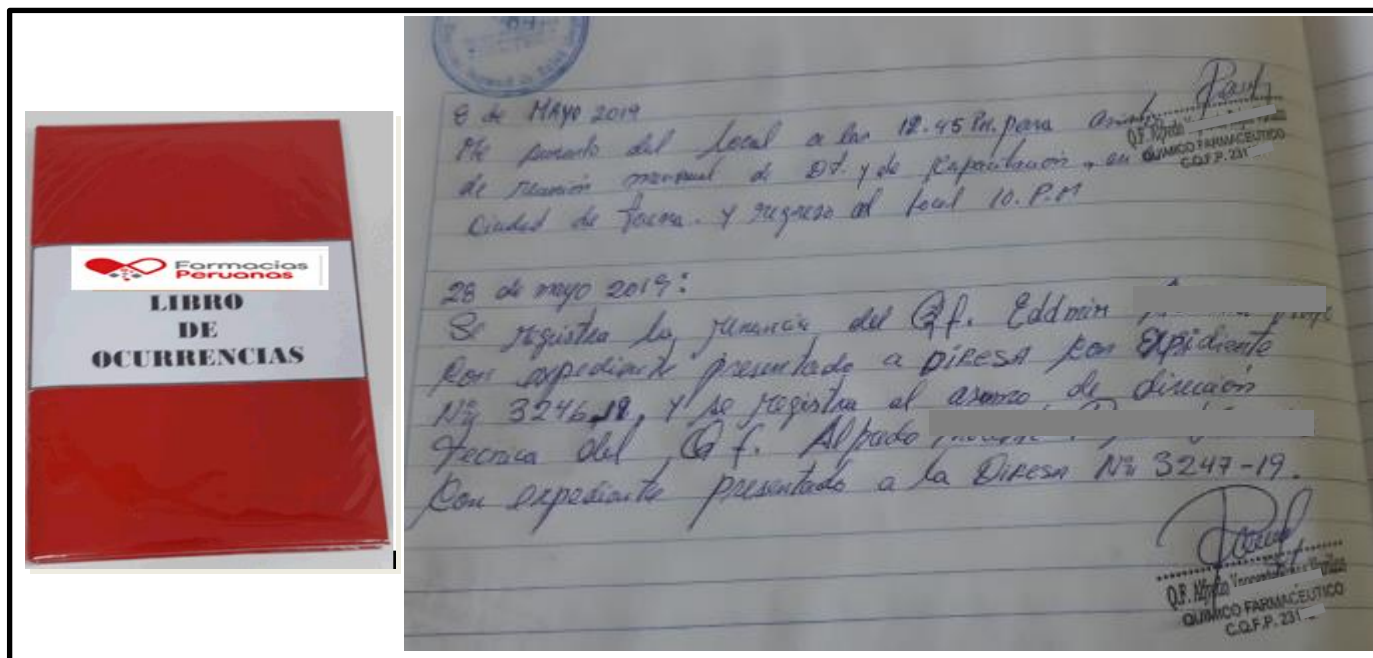 Farmacias
Peruanas
LIBRO
DE
OCURRENCIAS
8 de MAYO 2019
Me ausento del local a las 12.45 PM. para
de reunión mensual de DT. y de Kapacitacion, en
Ciudad de Tacna. y regreso al local 10. P.M
QUIMICO FARMACEUTICO
C.Q.F.P. 231
28 de mayo 2019:
Se registra la renuncia del Q.f. Eddmin
Con expediente presentado a DIRESA con expediente
N° 3246-19, y se registra el asumo de dirección
Tecnica del Q.f. Alfredo
Con expediente presentado a la DIRESA N° 3247-19.
Q.F. Alfredo
QUIMICO FARMACEUTICO
C.Q.F.P. 231